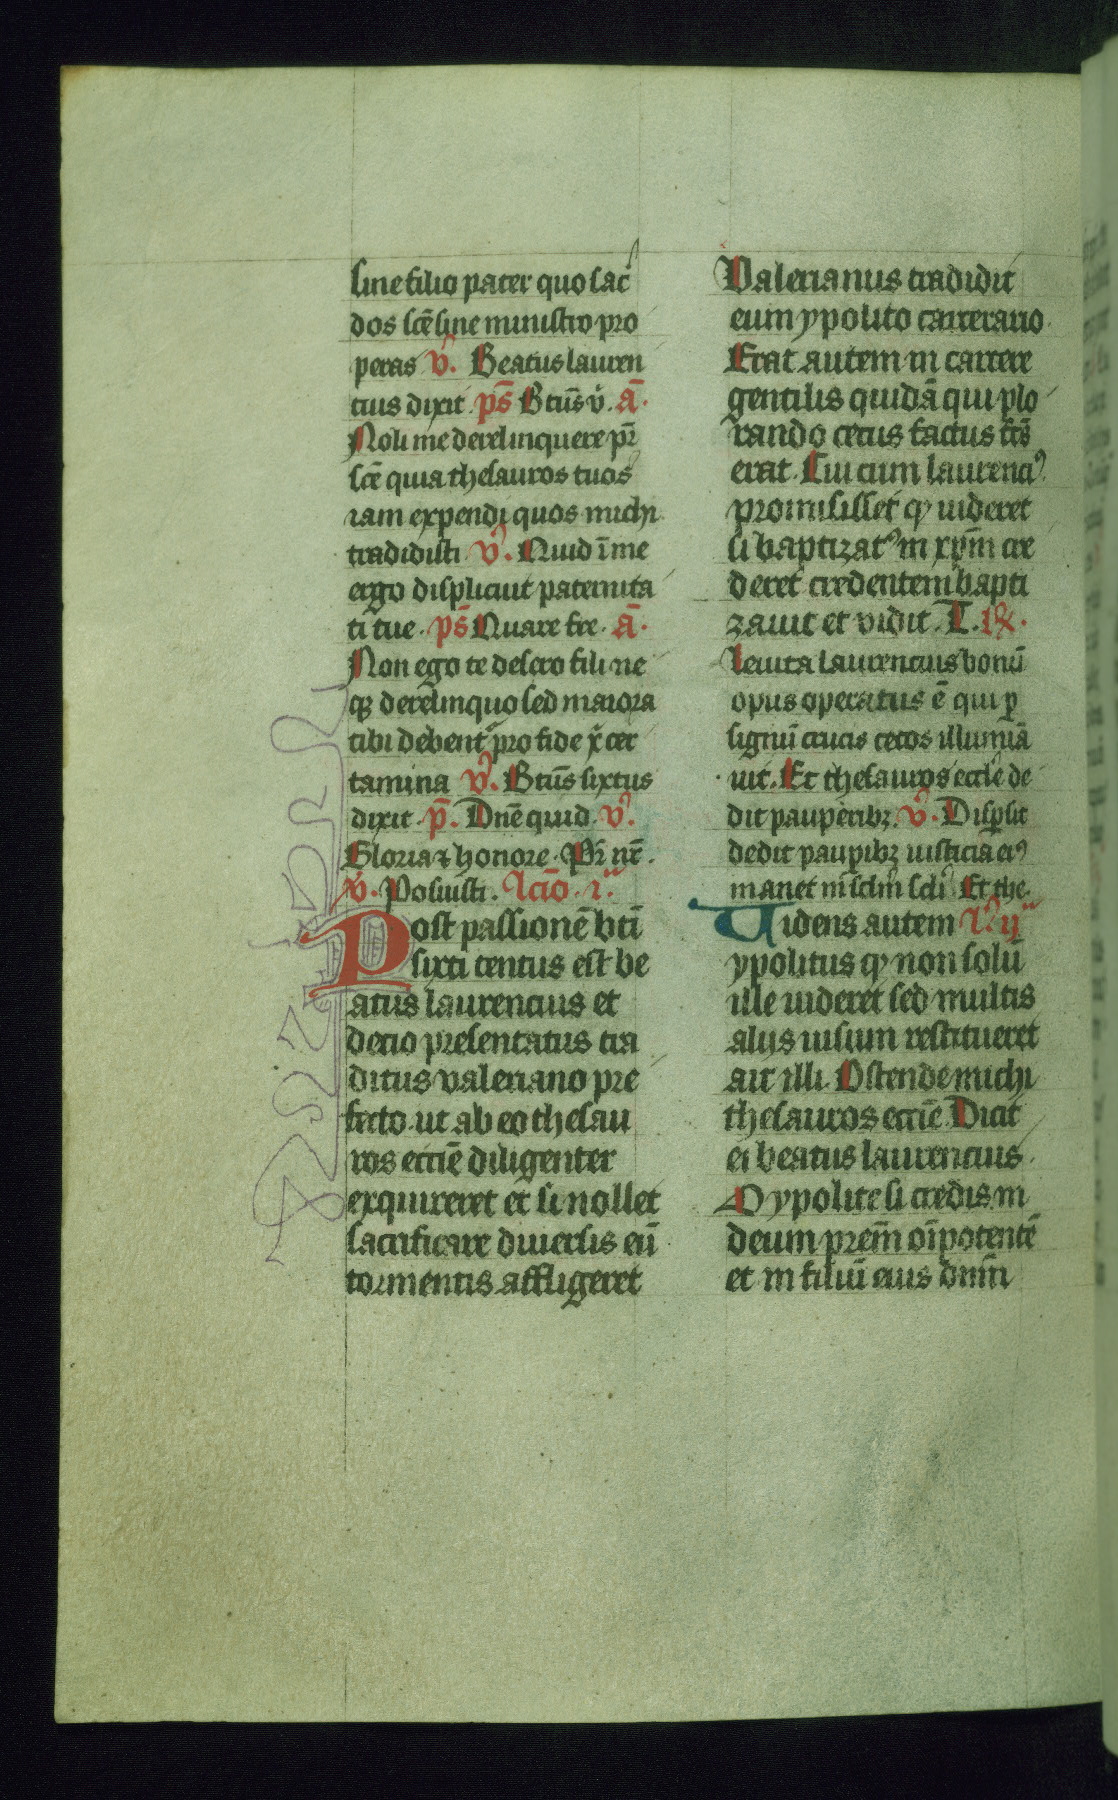 sine filio pater quo sac̄
dos sc̄e sine ministro pro
peras v̉. Beatus lauren
cius dixit. ps̄ Btūs v̉. ā.
Noli me derelinquere pr̄
sc̄e quia thesauros tuos
iam expendi quos michi
tradidisti v̉. Nuid ī me
ergo displicuit paternita
ti tue. ps̄ Nuare fre. ā.
Non ego te desero fili ne
qꝫ derelinquo sed maiora
tibi debent̉ pro fide xp̄i cer
tamina v̉. Btūs sixtus
dixit. p̄. Dn̄e quid. v̉.
Gloria ⁊ honore. Pr̄ nr̄.
v̉. Posuisti. Lcīo. i.ᵃ
Post passionē bti̅
sixti tentus est be
atus laurencius et
decio presentatus tra
ditus valeriano pre
fecto. ut ab eo thesau
ros ecc̄ie diligenter
exquireret et si nollet
sacrificare diuersis eū
tormentis affligeret
Valerianus tradidit
eum ypolito carcerario.
Erat autem in carcere
gentilis quidā qui plo
rando cecus factus fūs
erat. Cui cum laurenciꝰ
promisisset qꝫ uideret
si baptizatꝰ in xp̄m cre
deret credentem bapti
zauit et vidit. L. R̸.
Leuita laurencius bonū
opus operatus ē qui ꝑ
signū crucis cecos illumiā
uit. Et thesauros eccl̄e de
dit pauperibꝫ. v̉. Dispsit
dedit paupibꝫ iusticia eiꝰ
manet in sclm̄ scli̅. Et the.
Uidens autem L̉ ij.ᵃ
ypolitus qꝫ non solū
ille uideret sed multis
alijs uisum restitueret
ait illi. Ostende michi
thesauros ecc̄ie. Dicit
ei beatus laurencius.
O ypolite si credis in
deum prem̄ oīpotentē
et in filiū eius dnm̄